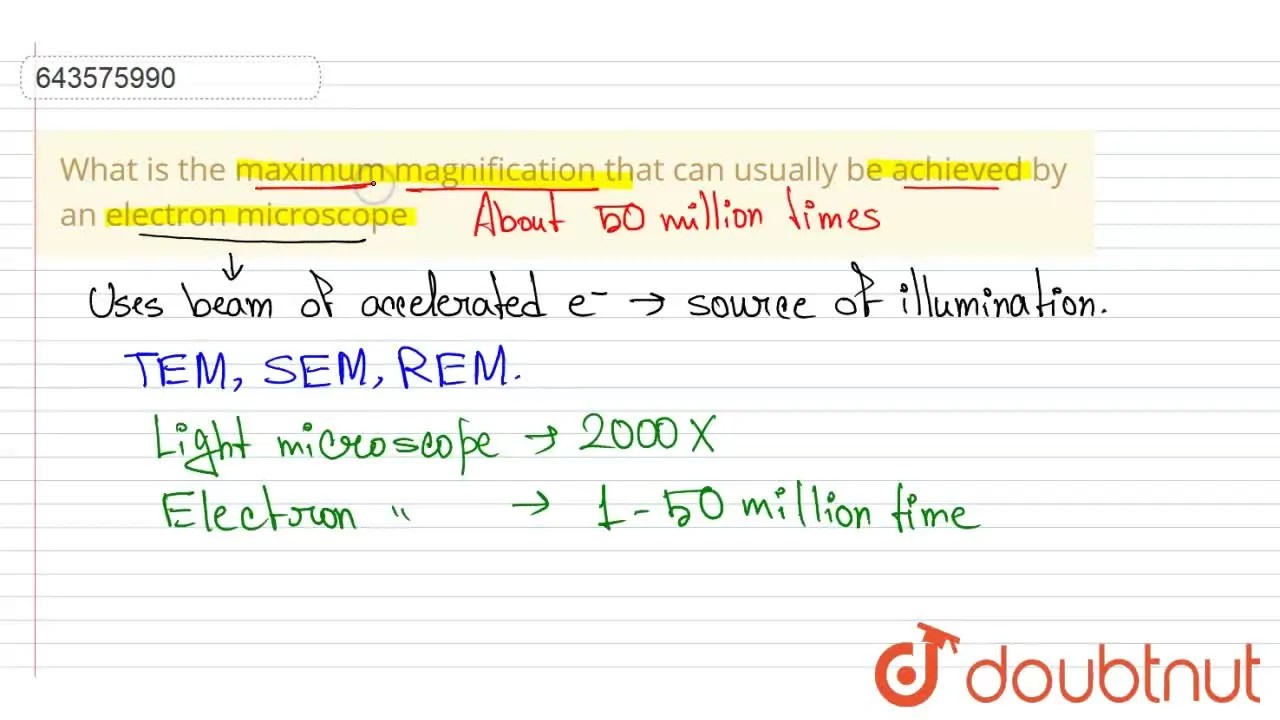 643575990
What is the maximum magnification that can usually be achieved by
an electron microscope About 50 million times
Uses beam of accelerated e⁻ → source of illumination.
TEM, SEM, REM.
Light microscope → 2000 X
Electron " → 1 - 50 million time
doubtnut